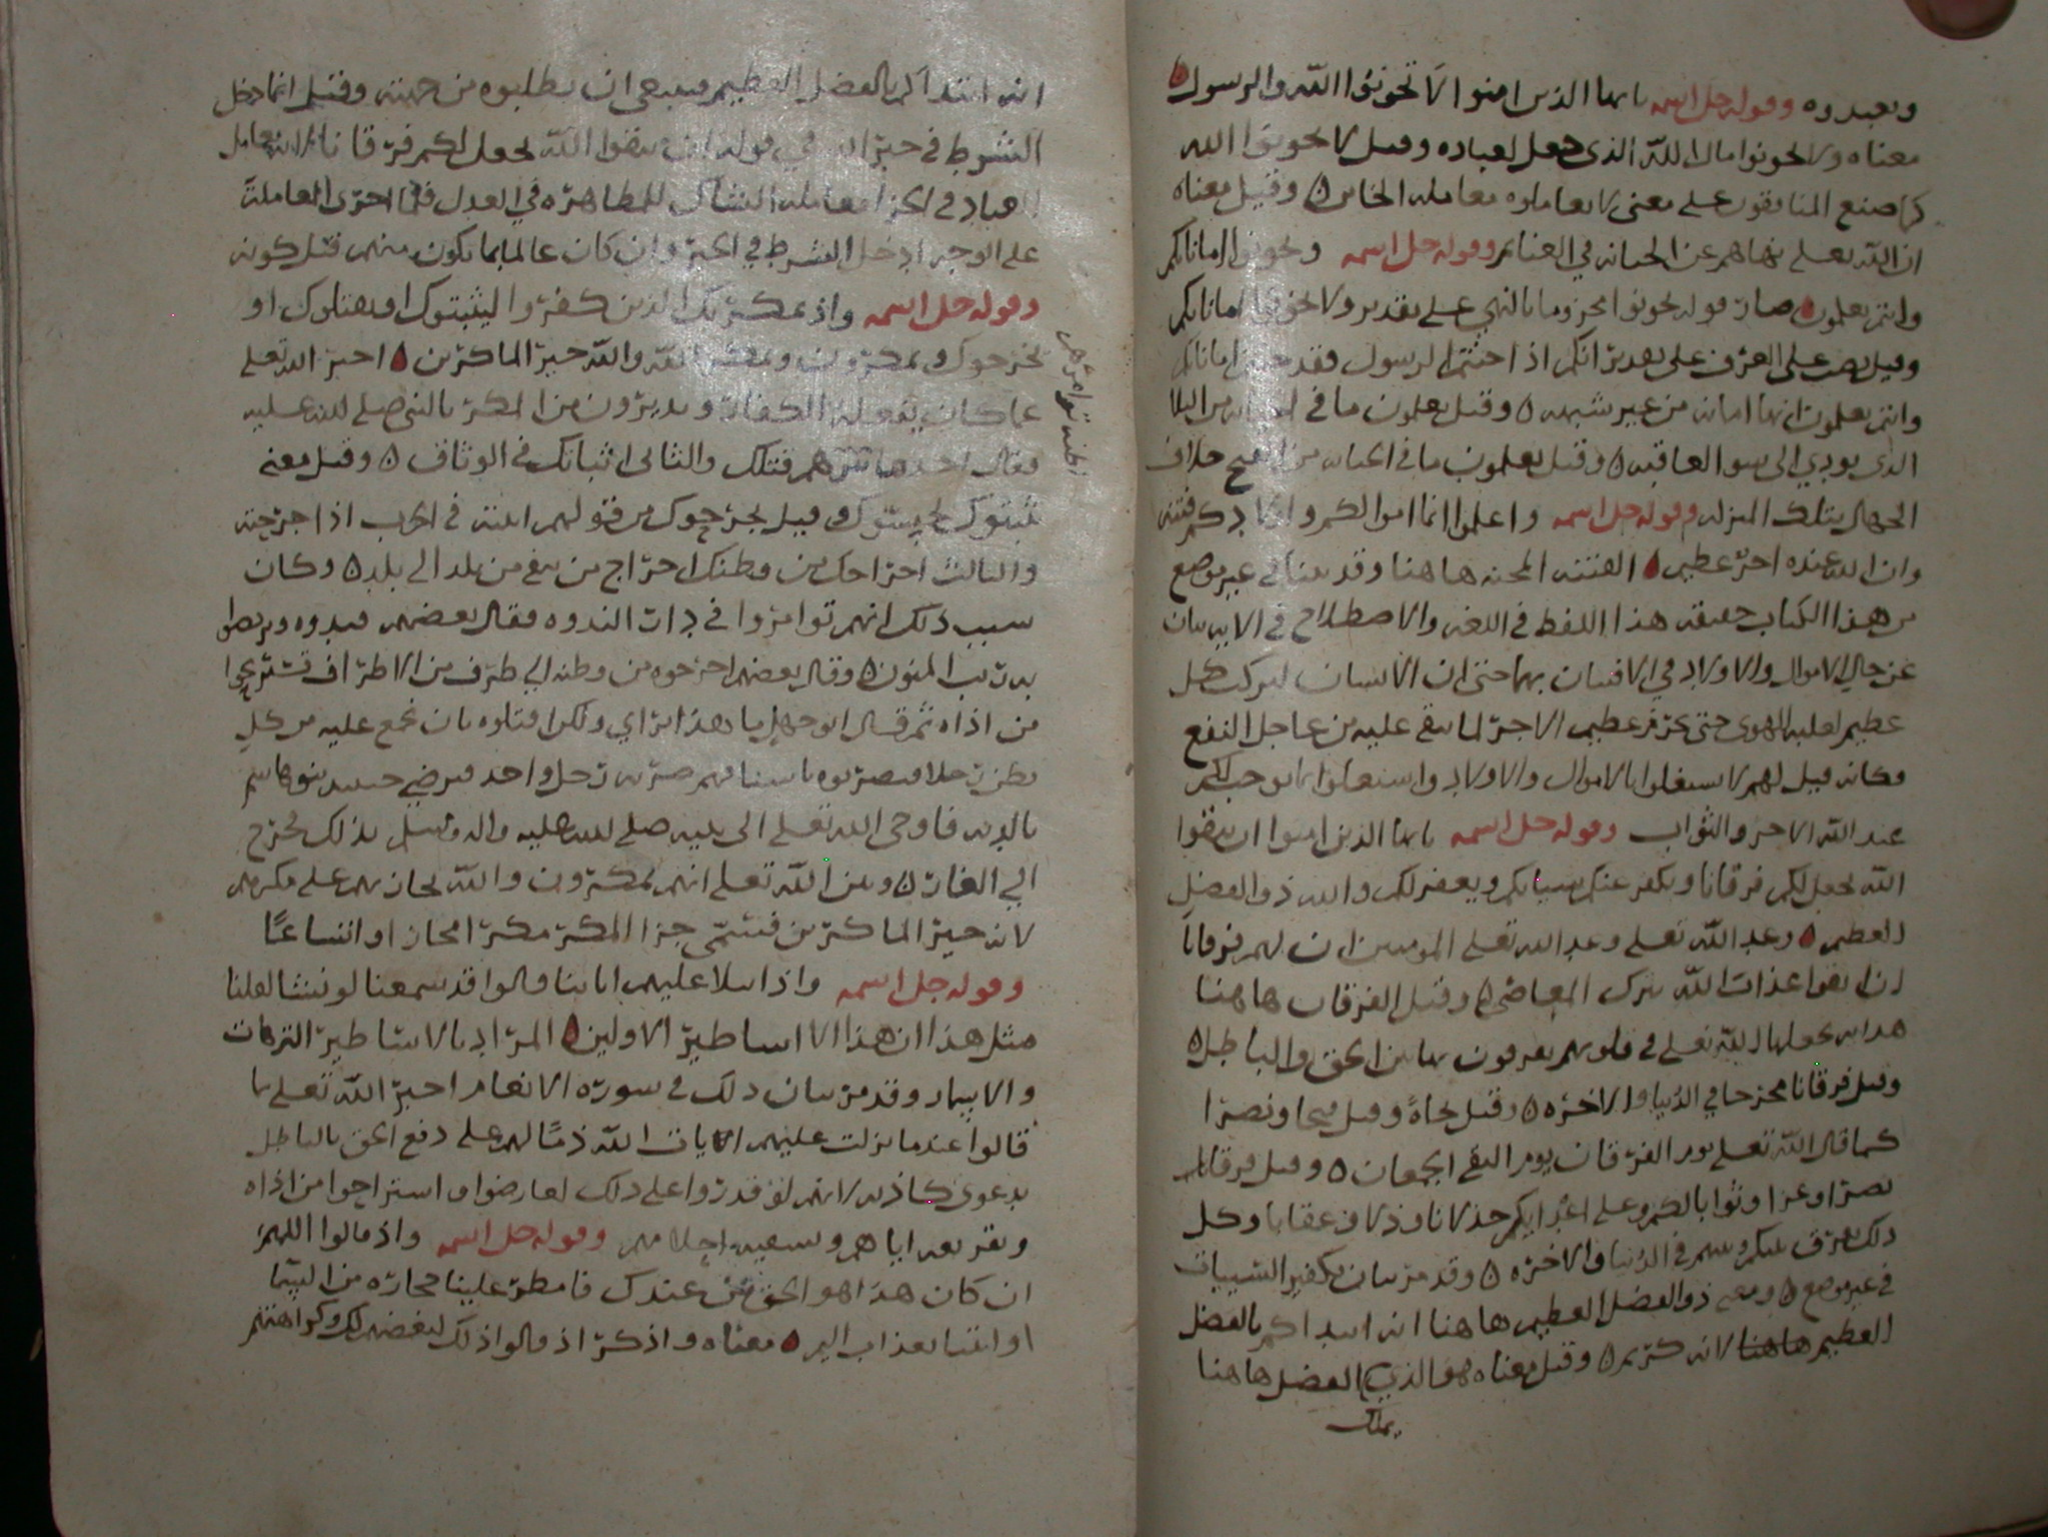 وتعبدوه وقوله جل اسمه يا ايها الذين امنوا لا تخونوا الله والرسول
معناه ولا تخونوا مال الله الذي جعل لعباده وقيل لا تخونوا الله
كما صنع المنافقون على معنى لا تعاملوه معاملة الخاين وقيل معناه
ان الله تعلى نهاهم عن الخيانة في الغنائم وقوله جل اسمه وتخونوا اماناتكم
وانتم تعلمون صار قوله تخونوا مجزوما بالنهي على تقدير ولا تخونوا اماناتكم
وقيل نصب على الصرف على تقدير انكم اذا خنتم الرسول فقد خنتم اماناتكم
وانتم تعلمون انها امانة من غير شبهه وقيل تعلمون ما في الخيانه من البلا
الذي يودي الى سو العاقبه وقيل تعلمون ما في الخيانه من القبح خلاف
الجهال بتلك المنزله وقوله جل اسمه واعلموا انما اموالكم واولادكم فتنة
وان الله عنده اجر عظيم الفتنه المحنه هاهنا وقد بينا في غير موضع
من هذا الكتاب حقيقه هذا اللفظ في اللغه والاصطلاح في الايه بيان
عن حال الاموال والاولاد في الافتتان بهما حتى ان الانسان ليركب كل
عظيم لغلبه الهوى حتى يحرم عظيم الاجر لما يبقى عليه من عاجل النفع
فكانه قيل لهم لا تشتغلوا بالاموال والاولاد واشتغلوا بما يوجب لكم
عند الله الاجر والثواب وقوله جل اسمه يا ايها الذين امنوا ان تتقوا
الله يجعل لكم فرقانا ويكفر عنكم سياتكم ويغفر لكم والله ذو الفضل
العظيم وعد الله تعلى وعد الله تعلى المومنين ان لهم فرقانا
ان اتقوا عذاب الله بترك المعاصي وقيل الفرقان هاهنا
هدايه يجعلها الله تعلى في قلوبهم يفرقون بها بين الحق والباطل
وقيل فرقانا مخرجا في الدنيا والاخره وقيل نجاة وقيل فتحا ونصرا
كما قال الله تعلى يوم الفرقان يوم التقى الجمعان وقيل فرقانا
نصرا وعزا وثوابا لكم وعلى اعدايكم خذلانا وذلا وعقابا وكل
ذلك يفرق بينكم وبينهم في الدنيا والاخره وقد مر بيان تكفير السييات
في غير موضع ومعنى ذو الفضل العظيم هاهنا انه ابتداكم بالفضل
العظيم هاهنا لانه كريم وقيل معناه هو الذي الفضل هاهنا
يملك
انه ابتداكم بالفضل العظيم فينبغي ان تطلبوه من جهته وقيل انما دخل
الشرط في خبر الله في قوله ان تتقوا الله يجعل لكم فرقانا لانه يعامل
العباد في الجزا معاملة الشاك للمظاهره في العدل فلما اجرى المعاملة
على الوجه ادخل الشرط في الخبر وان كان عالما بما يكون منهم قبل كونه
وقوله جل اسمه واذ يمكر بك الذين كفروا ليثبتوك او يقتلوك او
يخرجوك ويمكرون ويمكر الله والله خير الماكرين اخبر الله تعلى
عما كان يفعله الكفار ويديرون من المكر بالنبي صلى الله عليه
فقال احدها قتلك والثاني اثباتك في الوثاق وقيل معنى
يثبتوك ليحبسوك وقيل يجرحوك من قولهم اثبته في الحرب اذا جرحته
والثالث اخراجك من وطنك اخراج من ينفى من بلد الى بلد وكان
سبب ذلك انهم توامروا في دار الندوه فقال بعضهم قيدوه وتربصوا
به ريب المنون وقال بعضهم اخرجوه من وطنه الى طرف من الاطراف تستريحوا
من اذاه ثم قال ابو جهل ما هذا براي ولكن اقتلوه بان يجمع عليه من كل
بطن رجلا فيضربوه باسيافهم ضربه رجل واحد فيرضى حينيذ بنو هاشم
بالديه فاوحى الله تعلى الى نبيه صلى الله عليه واله وسلم بذلك فخرج
الى الغار وبين الله تعلى انهم يمكرون والله يجازيهم على مكرهم
لانه خير الماكرين فسمى جزا المكر مكرا مجازا واتساعا
وقوله جل اسمه واذا تتلا عليهم اياتنا قالوا قد سمعنا لو نشا لقلنا
مثل هذا ان هذا الا اساطير الاولين المراد بالاساطير الترهات
وقد مر بيان ذلك في سورة الانعام اخبر الله تعلى بما
قالوا عند ما نزلت عليهم ايات الله ذما لهم على دفع الحق بالباطل
بدعوى كاذبه لانهم لو قدروا على ذلك لعارضوا واستراحوا من اذاه
وتقريعه اياهم وتسفيه احلامهم وقوله جل اسمه واذ قالوا اللهم
ان كان هذا هو الحق من عندك فامطر علينا حجاره من السما
او ائتنا بعذاب اليم معناه واذكر اذ قالوا ذلك لبغضهم لك وكراهتهم